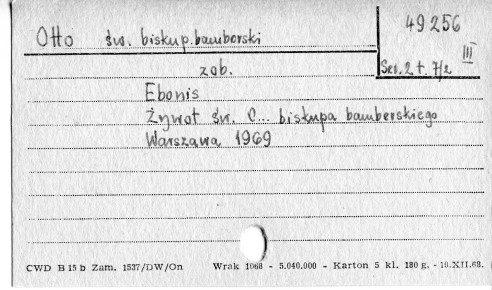 Otto św. biskup bamberski
49256
III
Ser. 2 t. 7/2
zob.
Ebonis
Żywot św. O... biskupa bamberskiego
Warszawa 1969
CWD B 15 b Zam. 1537/DW/On Wrak 1068 - 5.040.000 - Karton 5 kl. 180 g. - 10.XII.68.